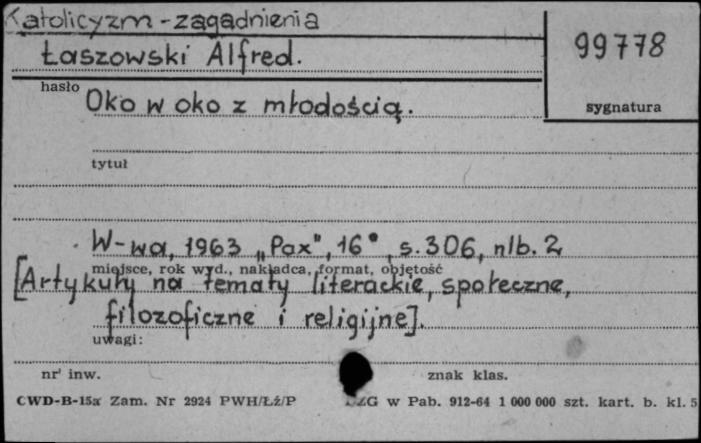 Katolicyzm - zagadnienia
Łaszowski Alfred.
99778
hasło
sygnatura
Oko w oko z młodością.
tytuł
W-wa, 1963 „Pax", 16°, s. 306, nlb. 2
miejsce, rok wyd., nakładca, format, objętość
[Artykuły na tematy literackie, społeczne,
filozoficzne i religijne].
uwagi:
nr inw.
znak klas.
CWD-B-15a Zam. Nr 2924 PWH/Łź/P
ZG w Pab. 912-64 1 000 000 szt. kart. b. kl. 5